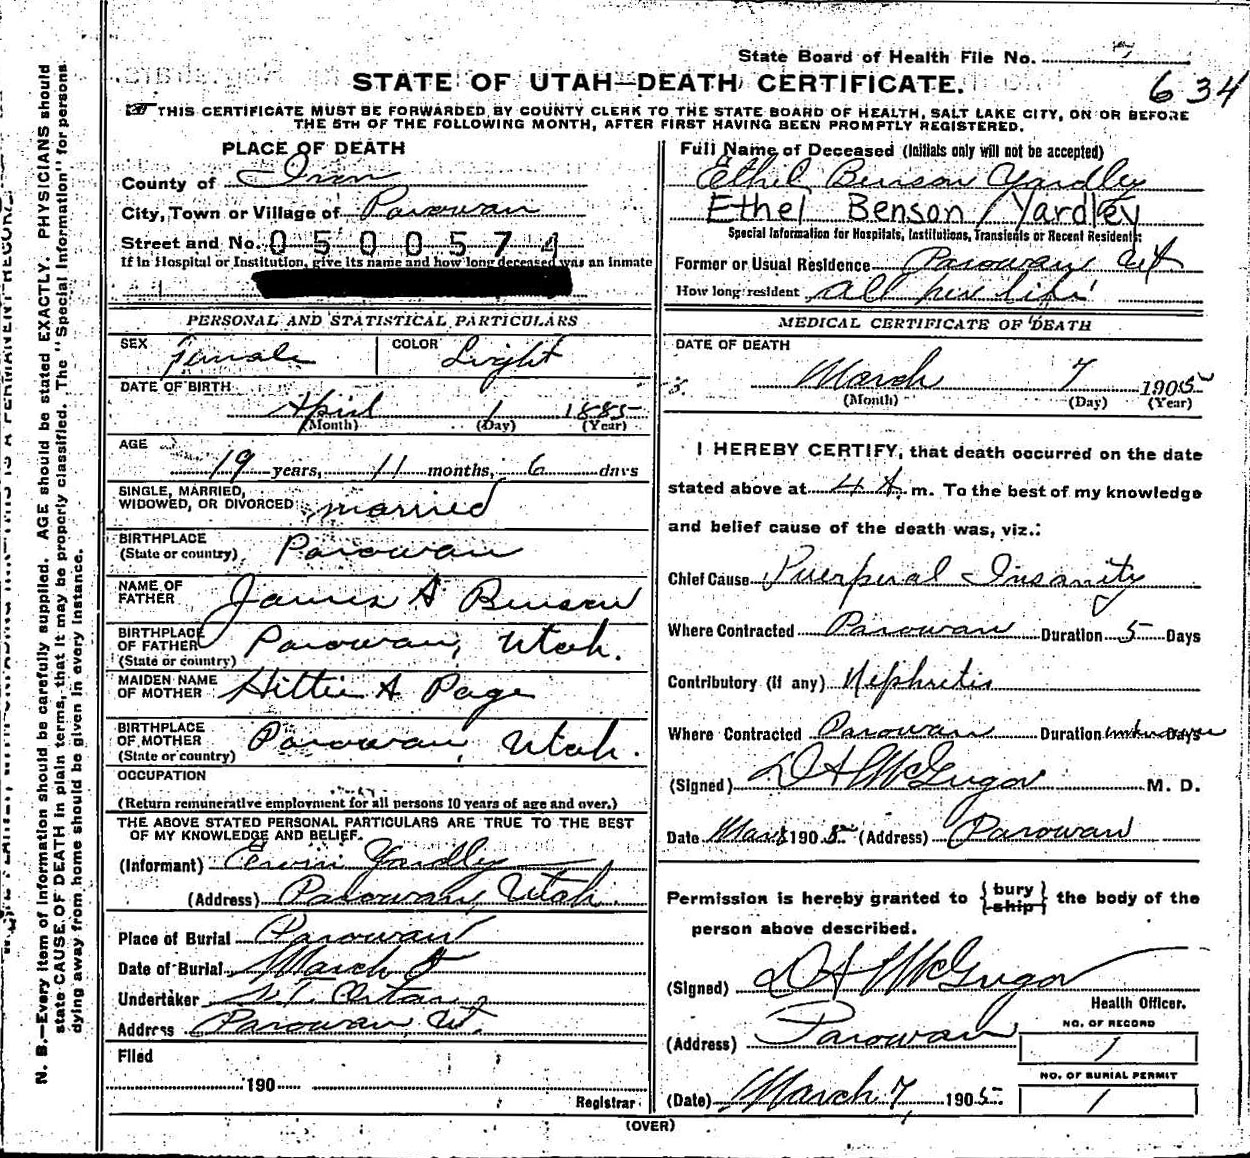 State Board of Health File No.
634
STATE OF UTAH—DEATH CERTIFICATE.
THIS CERTIFICATE MUST BE FORWARDED BY COUNTY CLERK TO THE STATE BOARD OF HEALTH, SALT LAKE CITY, ON OR BEFORE
THE 5TH OF THE FOLLOWING MONTH, AFTER FIRST HAVING BEEN PROMPTLY REGISTERED.
PLACE OF DEATH
County of Iron
City, Town or Village of Parowan
Street and No. 0500574
If in Hospital or Institution, give its name and how long deceased was an inmate
PERSONAL AND STATISTICAL PARTICULARS
SEX Female COLOR Light
DATE OF BIRTH
April 1 1885
(Month) (Day) (Year)
AGE
19 years, 11 months, 6 days
SINGLE, MARRIED,
WIDOWED, OR DIVORCED married
BIRTHPLACE
(State or country) Parowan
NAME OF
FATHER James A Benson
BIRTHPLACE
OF FATHER Parowan, Utah.
(State or country)
MAIDEN NAME
OF MOTHER Hittie A Page
BIRTHPLACE
OF MOTHER Parowan, Utah.
(State or country)
OCCUPATION
(Return remunerative employment for all persons 10 years of age and over.)
THE ABOVE STATED PERSONAL PARTICULARS ARE TRUE TO THE BEST
OF MY KNOWLEDGE AND BELIEF.
(Informant) Yardley
(Address) Parowan, Utah.
Place of Burial Parowan
Date of Burial March
Undertaker
Address Parowan Ut.
Filed
190
Registrar
Full Name of Deceased (Initials only will not be accepted)
Ethel Benson Yardley
Ethel Benson Yardley
Special Information for Hospitals, Institutions, Transients or Recent Residents:
Former or Usual Residence Parowan Ut
How long resident all her life
MEDICAL CERTIFICATE OF DEATH
DATE OF DEATH
March 7 1905
(Month) (Day) (Year)
I HEREBY CERTIFY, that death occurred on the date
stated above at 4 A m. To the best of my knowledge
and belief cause of the death was, viz.:
Chief Cause Puerperal Insanity
Where Contracted Parowan Duration 5 Days
Contributory (if any) Nephretis
Where Contracted Parowan Duration unknown Days
(Signed) D A McGregor M. D.
Date Mar 8 1905 (Address) Parowan
Permission is hereby granted to {bury ship} the body of the
person above described.
(Signed) D A McGregor
Health Officer.
(Address) Parowan
NO. OF RECORD
1
NO. OF BURIAL PERMIT
1
(Date) March 7, 1905.
(OVER)
N. B.—Every item of information should be carefully supplied. AGE should be stated EXACTLY. PHYSICIANS should
state CAUSE OF DEATH in plain terms, that it may be properly classified. The "Special Information" for persons
dying away from home should be given in every instance.